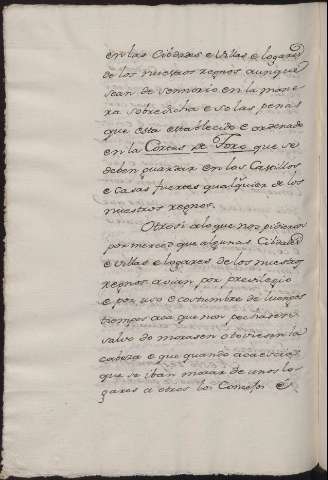 en las Cibdades e villas e logares
de los nuestros regnos aunque
sean de sennorio en la mane
ra sobredicha e so las penas
que esta establecido e ordenado
en la Cortes de Toro que se
deben guardar en los Castillos
e casas fuertes qualquier de los
nuestros regnos.
Otrosi a lo que nos pidieron
por merced que algunas Cibdades
e villas e logares de los nuestros
regnos avian por previlegio
e por uso e costumbre de luengos
tiempos aca que non pechasen
salvo do morasen o toviesen la
cabeza e que quando acaescie
que se iban morar de unos lo
gares a otros los Concejos